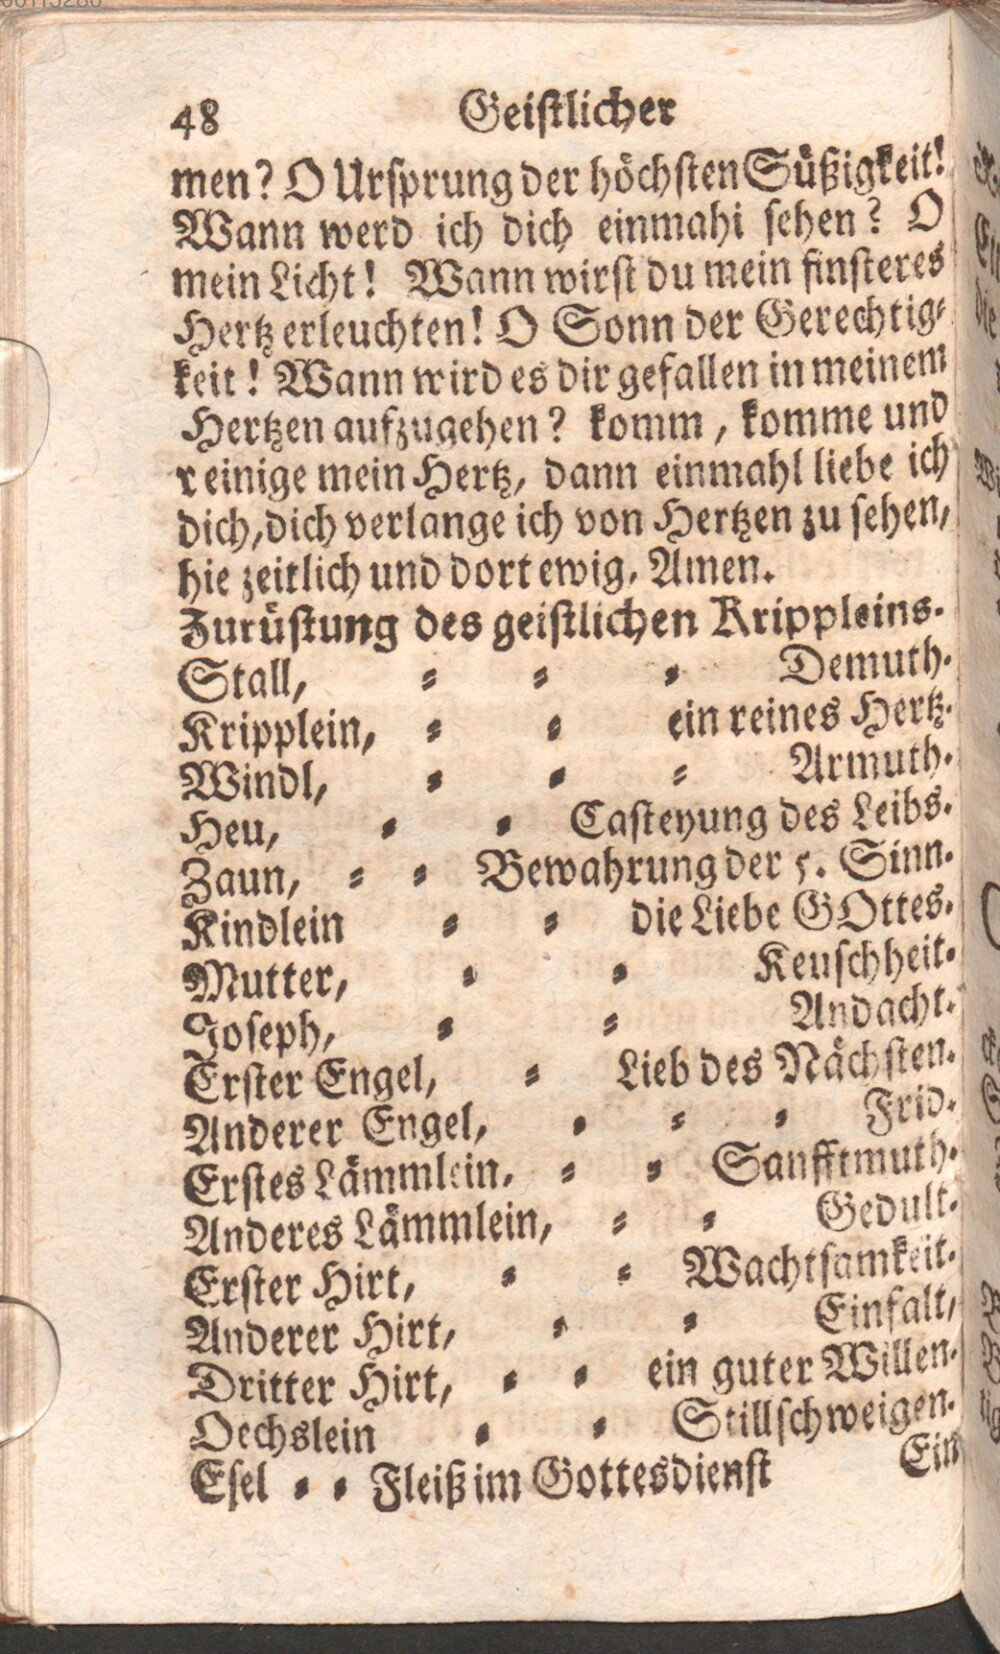 48 Geistlicher
men? O Ursprung der höchsten Süßigkeit!
Wann werd ich dich einmahi sehen? O
mein Licht! Wann wirst du mein finsteres
Hertz erleuchten! O Sonn der Gerechtig⸗
keit! Wann wird es dir gefallen in meinem
Hertzen aufzugehen? komm, komme und
reinige mein Hertz, dann einmahl liebe ich
dich, dich verlange ich von Hertzen zu sehen,
hie zeitlich und dort ewig. Amen.
Zurüstung des geistlichen Krippleins.
Stall, ⸗ ⸗ ⸗ Demuth.
Kripplein, ⸗ ⸗ ein reines Hertz.
Windl, ⸗ ⸗ ⸗ Armuth.
Heu, ⸗ ⸗ Casteyung des Leibs.
Zaun, ⸗ ⸗ Bewahrung der 5. Sinn.
Kindlein ⸗ ⸗ die Liebe GOttes.
Mutter, ⸗ ⸗ Keuschheit.
Joseph, ⸗ ⸗ Andacht.
Erster Engel, ⸗ Lieb des Nächsten.
Anderer Engel, ⸗ ⸗ ⸗ Frid.
Erstes Lämmlein. ⸗ ⸗ Sanfftmuth.
Anderes Lämmlein, ⸗ ⸗ Gedult.
Erster Hirt, ⸗ ⸗ Wachtsamkeit.
Anderer Hirt, ⸗ ⸗ Einfalt,
Dritter Hirt, ⸗ ⸗ ein guter Willen.
Oechslein ⸗ ⸗ Stillschweigen.
Esel ⸗ ⸗ Fleiß im Gottesdienst
Ein